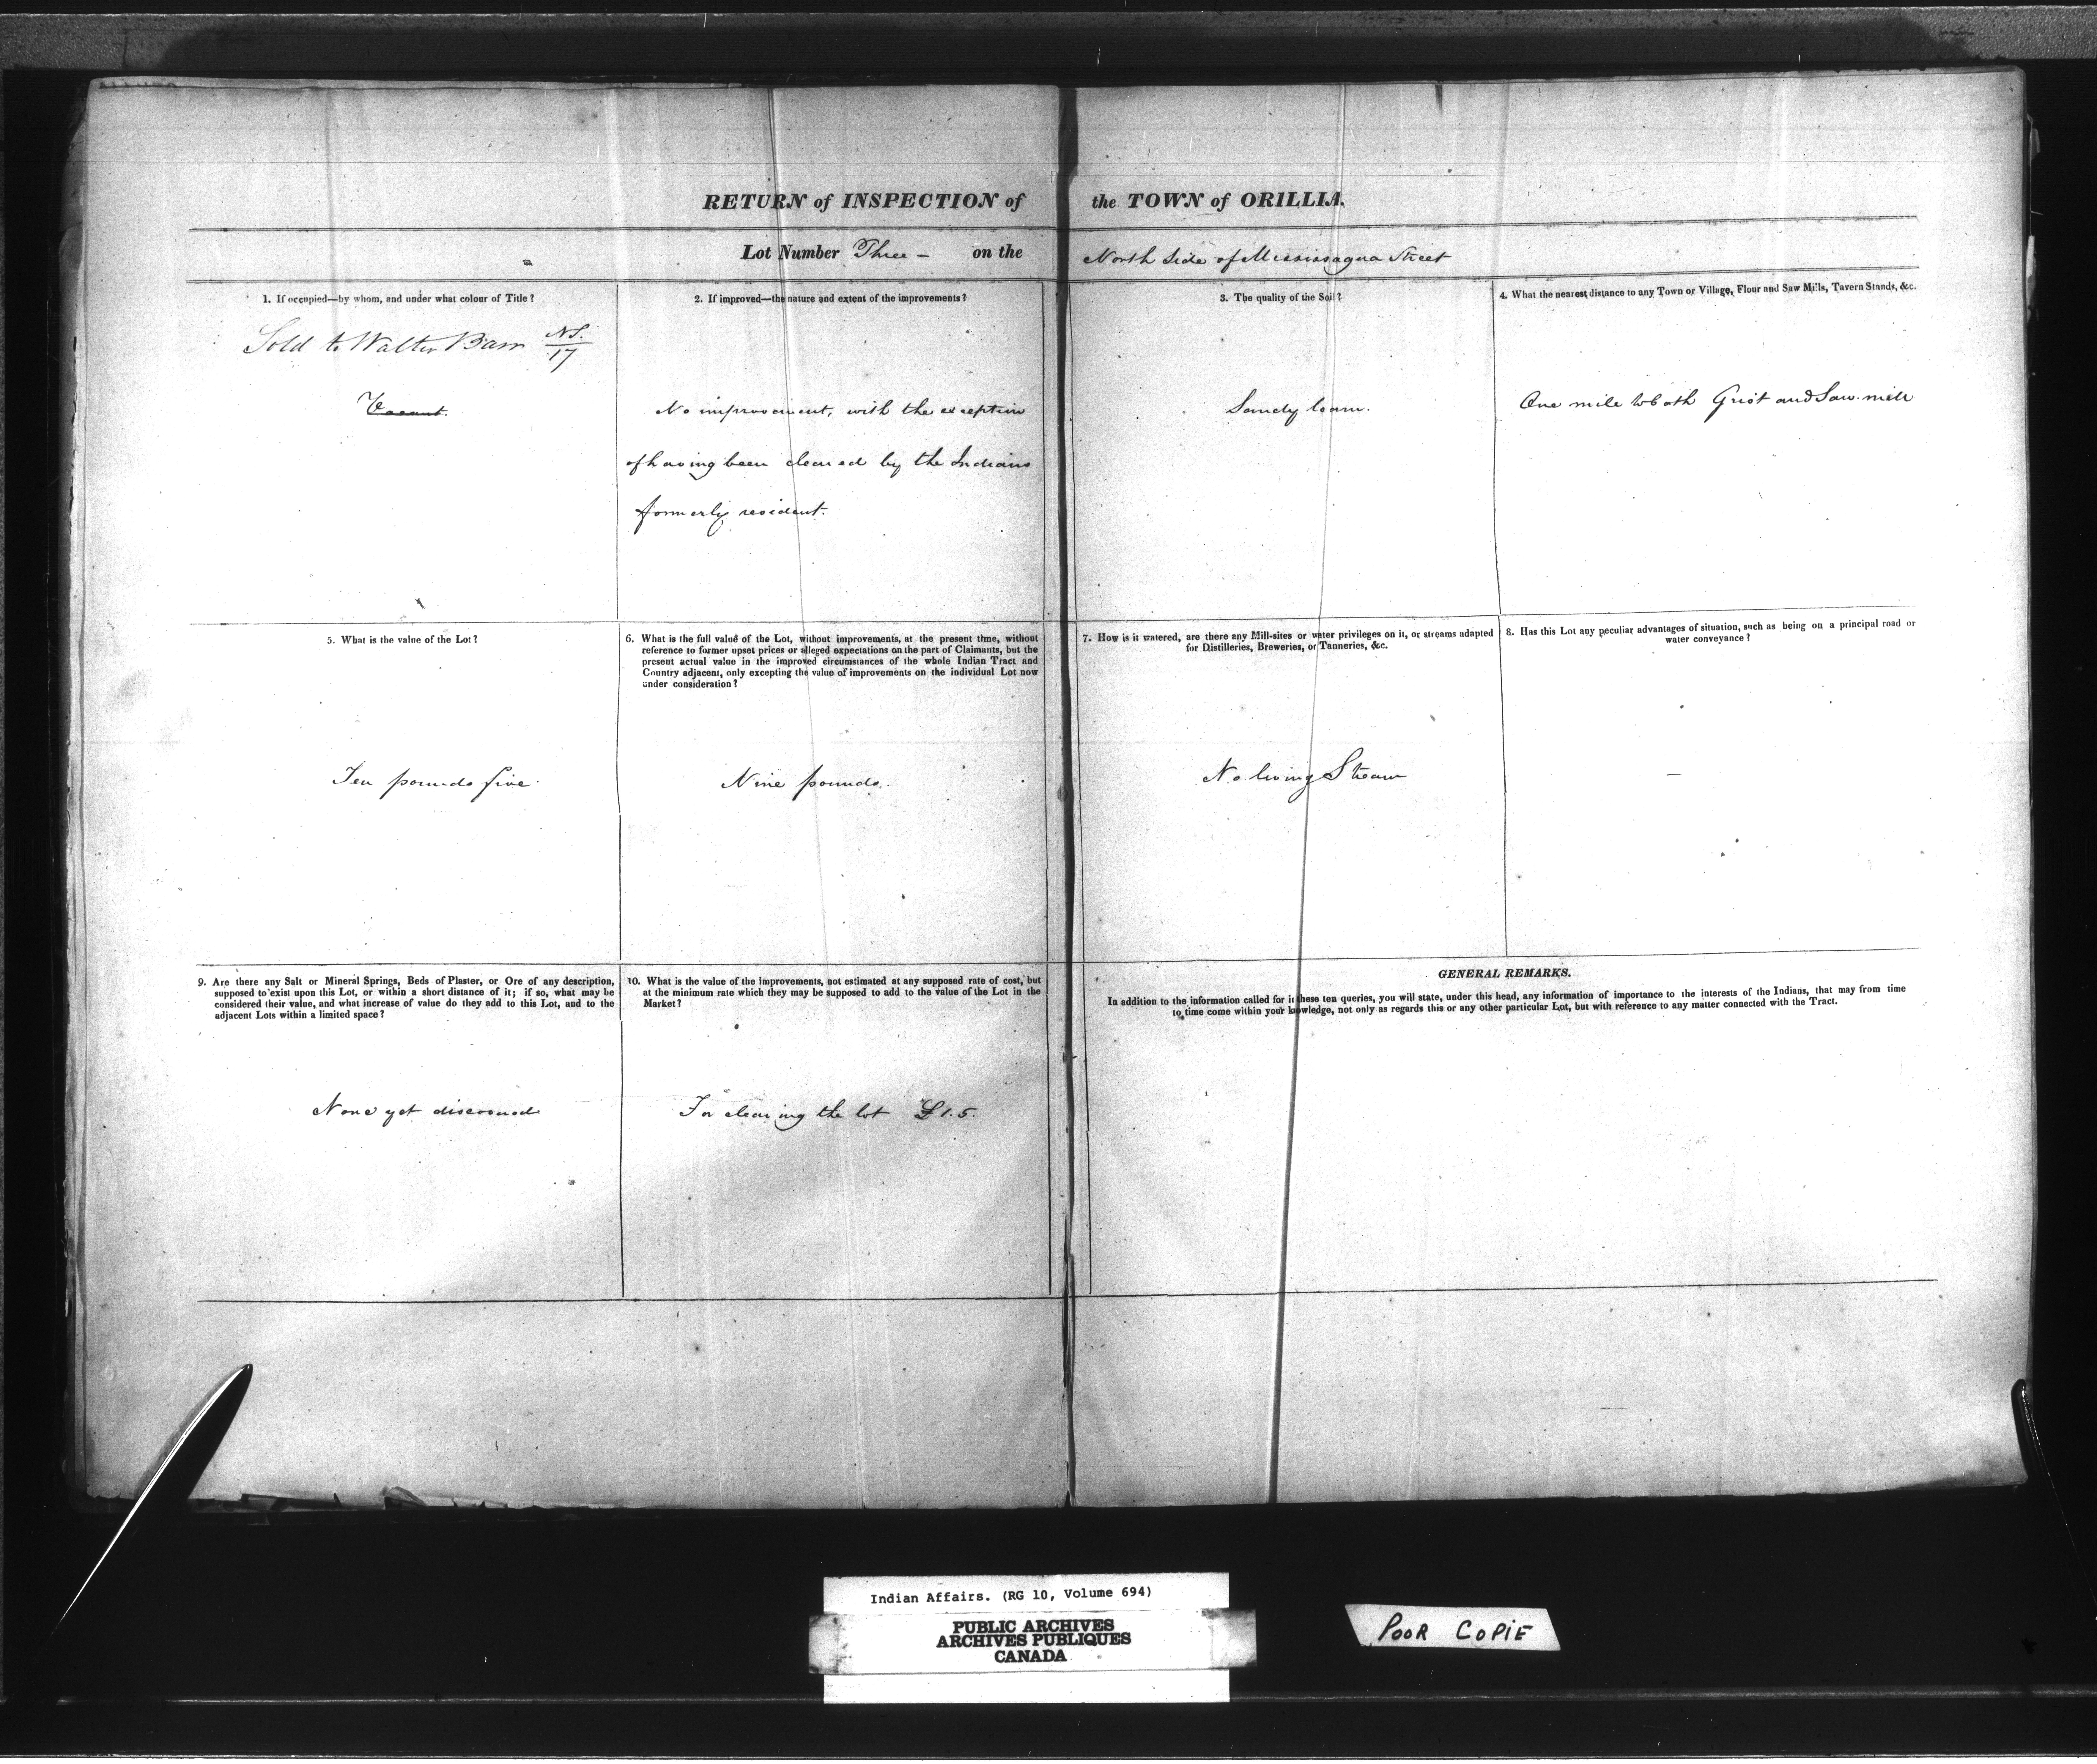 RETURN of INSPECTION of the TOWN of ORILLIA.
Lot Number Three – on the North Side of Mississagua Street
1. If occupied—by whom, and under what colour of Title?
Sold to Walter N.S.
17
Vacant.
2. If improved—the nature and extent of the improvements?
No improvement, with the exception
of having been cleared by the Indians
formerly resident.
3. The quality of the Soil?
Sandy loam.
4. What the nearest distance to any Town or Village, Flour and Saw Mills, Tavern Stands, &c.
One mile to both Grist and Saw mill
5. What is the value of the Lot?
Ten pounds five.
6. What is the full value of the Lot, without improvements, at the present time, without
reference to former upset prices or alleged expectations on the part of Claimants, but the
present actual value in the improved circumstances of the whole Indian Tract and
Country adjacent, only excepting the value of improvements on the individual Lot now
under consideration?
Nine pounds.
7. How is it watered, are there any Mill-sites or water privileges on it, or streams adapted
for Distilleries, Breweries, or Tanneries, &c.
No living Stream
8. Has this Lot any peculiar advantages of situation, such as being on a principal road or
water conveyance?
—
9. Are there any Salt or Mineral Springs, Beds of Plaster, or Ore of any description,
supposed to exist upon this Lot, or within a short distance of it; if so, what may be
considered their value, and what increase of value do they add to this Lot, and to the
adjacent Lots within a limited space?
None yet discovered
10. What is the value of the improvements, not estimated at any supposed rate of cost, but
at the minimum rate which they may be supposed to add to the value of the Lot in the
Market?
For clearing the lot £1.5.
GENERAL REMARKS.
In addition to the information called for in these ten queries, you will state, under this head, any information of importance to the interests of the Indians, that may from time
to time come within your knowledge, not only as regards this or any other particular Lot, but with reference to any matter connected with the Tract.
Indian Affairs. (RG 10, Volume 694)
PUBLIC ARCHIVES
ARCHIVES PUBLIQUES
CANADA
POOR COPIE